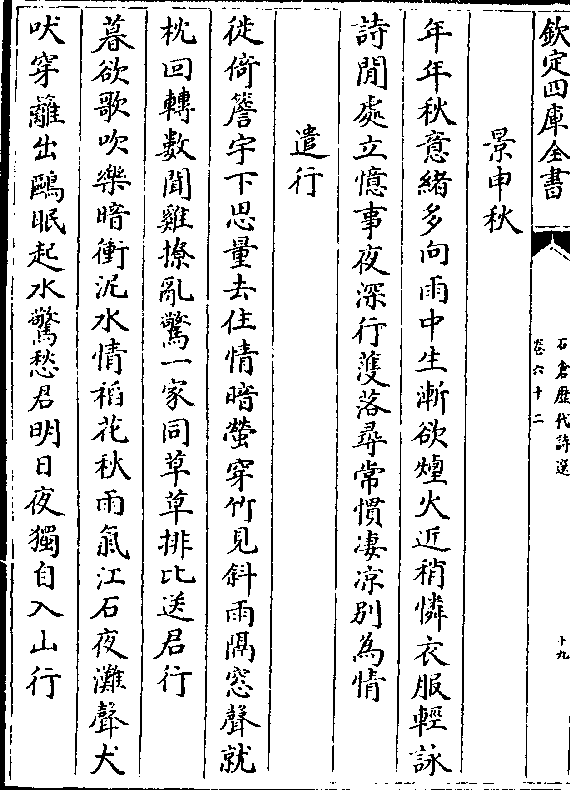 欽定四庫全書
石倉歷代詩選
卷六十二
十九
景申秋
年年秋意緒多向雨中生漸欲煙火近稍憐衣服輕詠
詩閒處立憶事夜深行濩落尋常慣凄凉別為情
遣行
徙倚簷宇下思量去住情暗螢穿竹見斜雨隔窓聲就
枕回轉數聞雞撩亂驚一家同草草排比送君行
暮欲歌吹樂暗衝泥水情稻花秋雨氣江石夜灘聲犬
吠穿籬出鷗眠起水驚愁君明日夜獨自入山行